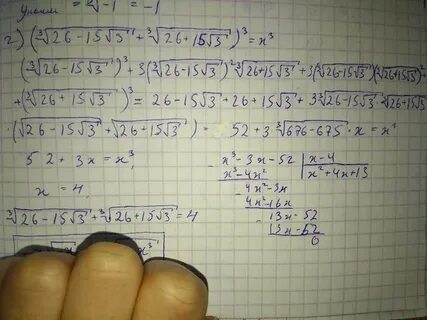 = ∛-1 = -1
2) (∛(26-15√3) + ∛(26+15√3))³ = x³
(∛(26-15√3))³ + 3(∛(26-15√3))² ∛(26+15√3) + 3(∛(26-15√3))(∛(26+15√3))² +
+ (∛(26+15√3))³ = 26-15√3 + 26+15√3 + 3∛(26-15√3) · ∛(26+15√3) ·
· (∛(26-15√3) + ∛(26+15√3)) = 52 + 3∛(676-675) · x = x³
52 + 3x = x³
x = 4
∛(26-15√3) + ∛(26+15√3) = 4
x³ - 3x - 52 | x - 4
x³ - 4x² | x² + 4x + 13
4x² - 3x
4x² - 16x
13x - 52
13x - 52
0